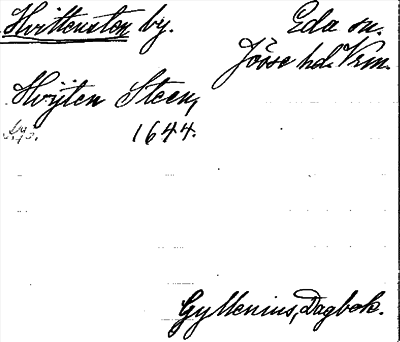 Hvittensten by. Eda sn.
Jösse hd. Vrm.
Hvijten Steen,
1644.
Gyllenius, Dagbok.